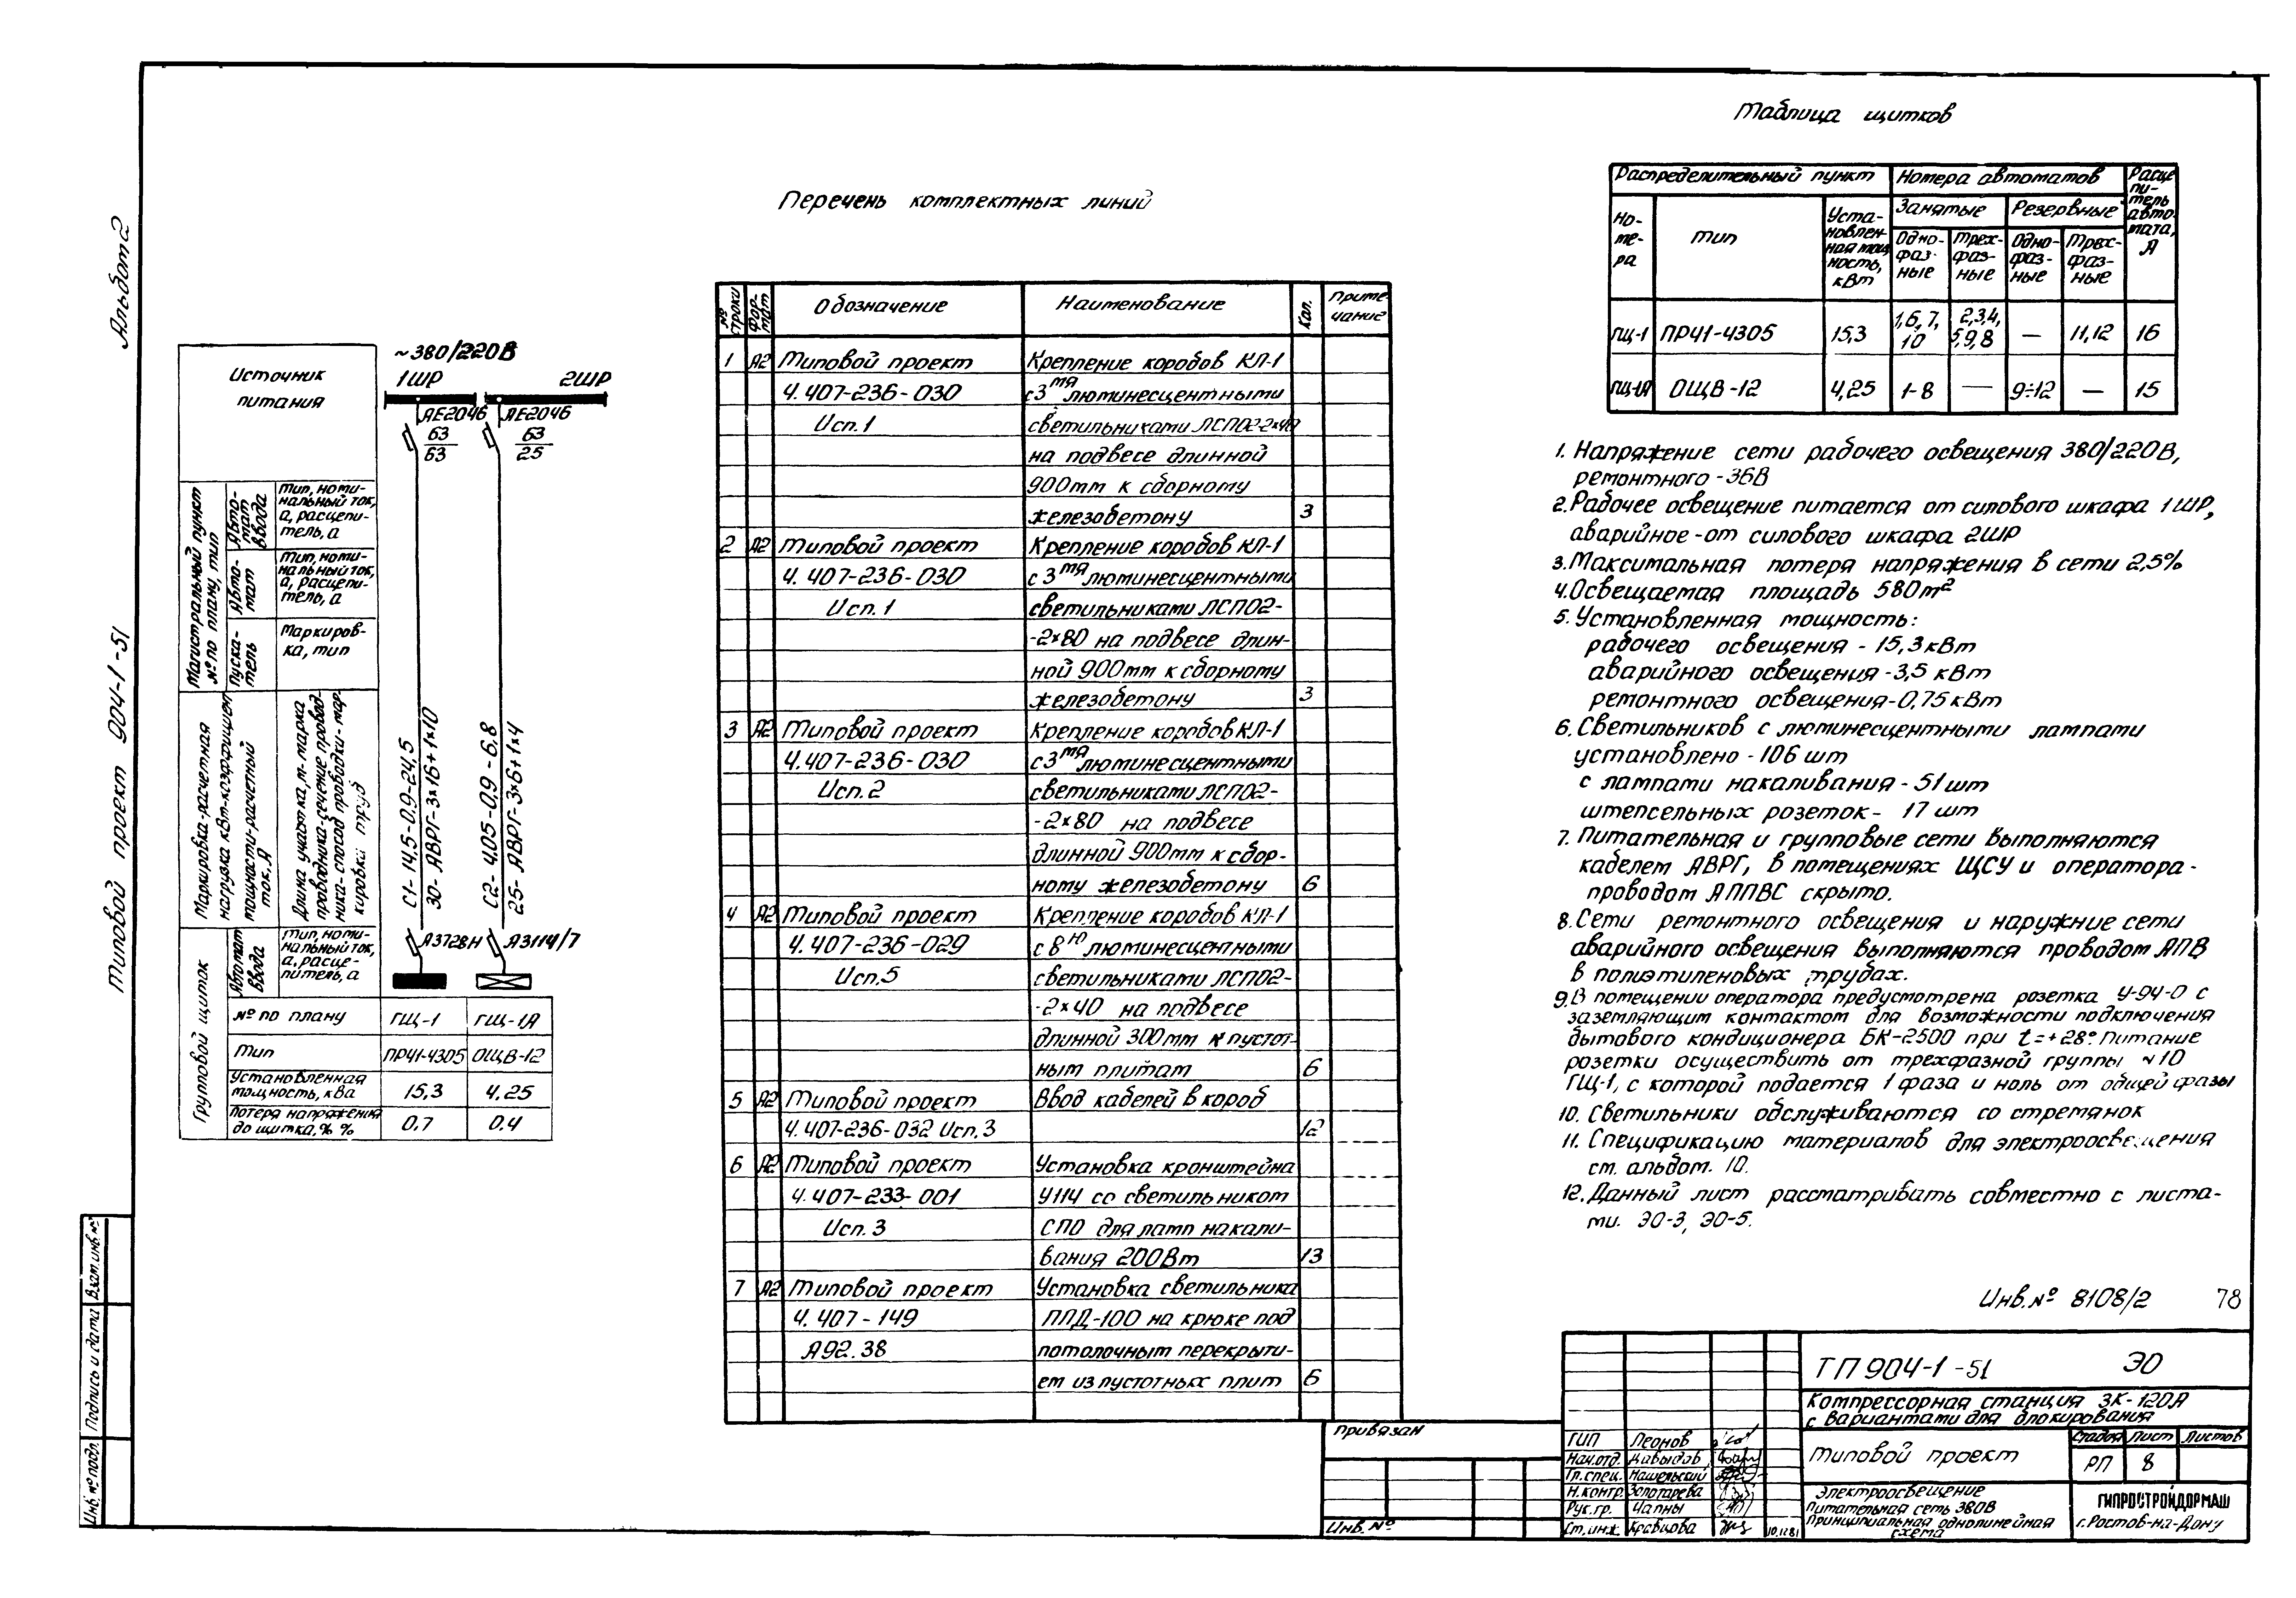 Альбом 2
Типовой проект 904-1-51
Таблица щитков
Распределительный пункт
Номера автоматов
Расце
пи-
тель
авто-
мата,
А
Но-
ме-
ра
Тип
Уста-
новлен-
ная мощ
ность,
кВт
Занятые
Резервные
Одно-
фаз-
ные
Трех-
фаз-
ные
Одно-
фаз-
ные
Трех-
фаз-
ные
ГЩ-1 ПР41-4305 15,3 1,6,7,10 2,3,4,5,9,8 — 11,12 16
ГЩ-1А ОЩВ-12 4,25 1-8 — 9÷12 — 15
Перечень комплектных линий
№ строки
Фор-
мат
Обозначение
Наименование
Кол.
Приме-
чание
1 А2 Типовой проект Крепление коробов КЛ-1
4.407-236-030 с 3мя люминесцентными
Исп.1 светильниками ЛСП02-2×40
на подвесе длинной
900мм к сборному
железобетону 3
2 А2 Типовой проект Крепление коробов КЛ-1
4.407-236-030 с 3мя люминесцентными
Исп.1 светильниками ЛСП02-
-2×80 на подвесе длин-
ной 900мм к сборному
железобетону 3
3 А2 Типовой проект Крепление коробов КЛ-1
4.407-236-030 с 3мя люминесцентными
Исп.2 светильниками ЛСП02-
-2×80 на подвесе
длинной 900мм к сбор-
ному железобетону 6
4 А2 Типовой проект Крепление коробов КЛ-1
4.407-236-029 с 8ю люминесцентными
Исп.5 светильниками ЛСП02-
-2×40 на подвесе
длинной 300мм к пустот-
ным плитам 6
5 А2 Типовой проект Ввод кабелей в короб
4.407-236-032 Исп.3 12
6 А2 Типовой проект Установка кронштейна
4.407-233-001 У114 со светильником
Исп.3 СПО для ламп накали-
вания 200Вт 13
7 А2 Типовой проект Установка светильника
4.407-149 ППД-100 на крюке под
А92.38 потолочным перекрыти-
ем из пустотных плит 6
Источник
питания
~380/220В
1ШР 2ШР
АЕ2046 АЕ2046
63
63
63
25
Магистральный пункт
№ по плану, тип
Авто-
мат
ввода
Тип, номи-
нальный ток,
а, расцепи-
тель, а
Авто-
мат
Тип, номи-
нальный ток,
а, расцепи-
тель, а
Пуска-
тель
Маркиров-
ка, тип
Маркировка-расчетная
нагрузка кВт-коэффициент
мощности-расчетный
ток, А
Длина участка, м-марка
проводника-сечение провод-
ника-способ проводки-мар-
кировки труб
С1-14,5-0,9-24,5
30-АВРГ-3×16+1×10
С2-4,05-0,9-6,8
25-АВРГ-3×6+1×4
Групповой щиток
Автомат
ввода
Тип, номи-
нальный ток,
а, расце-
питель, а
А3728Н А3114/7
№ по плану ГЩ-1 ГЩ-1А
Тип ПР41-4305 ОЩВ-12
Установленная
мощность, кВа 15,3 4,25
Потеря напряжения
до щитка, % % 0,7 0,4
1. Напряжение сети рабочего освещения 380/220В,
ремонтного-36В
2. Рабочее освещение питается от силового шкафа 1ШР,
аварийное-от силового шкафа 2ШР
3. Максимальная потеря напряжения в сети 2,5%
4. Освещаемая площадь 580м²
5. Установленная мощность:
рабочего освещения - 15,3 кВт
аварийного освещения -3,5 кВт
ремонтного освещения-0,75кВт
6. Светильников с люминесцентными лампами
установлено - 106 шт
с лампами накаливания - 51шт
штепсельных розеток - 17 шт
7. Питательная и групповые сети выполняются
кабелем АВРГ, в помещениях ЩСУ и оператора-
проводом АППВС скрыто.
8. Сети ремонтного освещения и наружние сети
аварийного освещения выполняются проводом АПВ
в полиэтиленовых трубах.
9. В помещении оператора предусмотрена розетка У-94-О с
заземляющим контактом для возможности подключения
бытового кондиционера БК-2500 при t=+28° Питание
розетки осуществить от трехфазной группы №10
ГЩ-1, с которой подается 1 фаза и ноль от общей фазы
10. Светильники обслуживаются со стремянок
11. Спецификацию материалов для электроосвещения
см. альбом. 10.
12. Данный лист рассматривать совместно с листа-
ми. ЭО-3, ЭО-5.
Инв.№ 8108/2 78
ТП 904-1-51 ЭО
Компрессорная станция 3К-120А
с вариантами для блокирования
Типовой проект
Стадия Лист Листов
РП 8
Электроосвещение
Питательная сеть 380В
Принципиальная однолинейная
схема
ГИПРОСТРОЙДОРМАШ
г. Ростов-на-Дону
ГИП Леонов
Нач.отд. Давыдов
Гл.спец. Нашельский
Н.контр. Золотарева
Рук.гр. Чапны
Ст.инж. Кравцова 10.12.81
Привязан
Инв. №
Взам. инв. №
Подпись и дата
Инв. № подл.